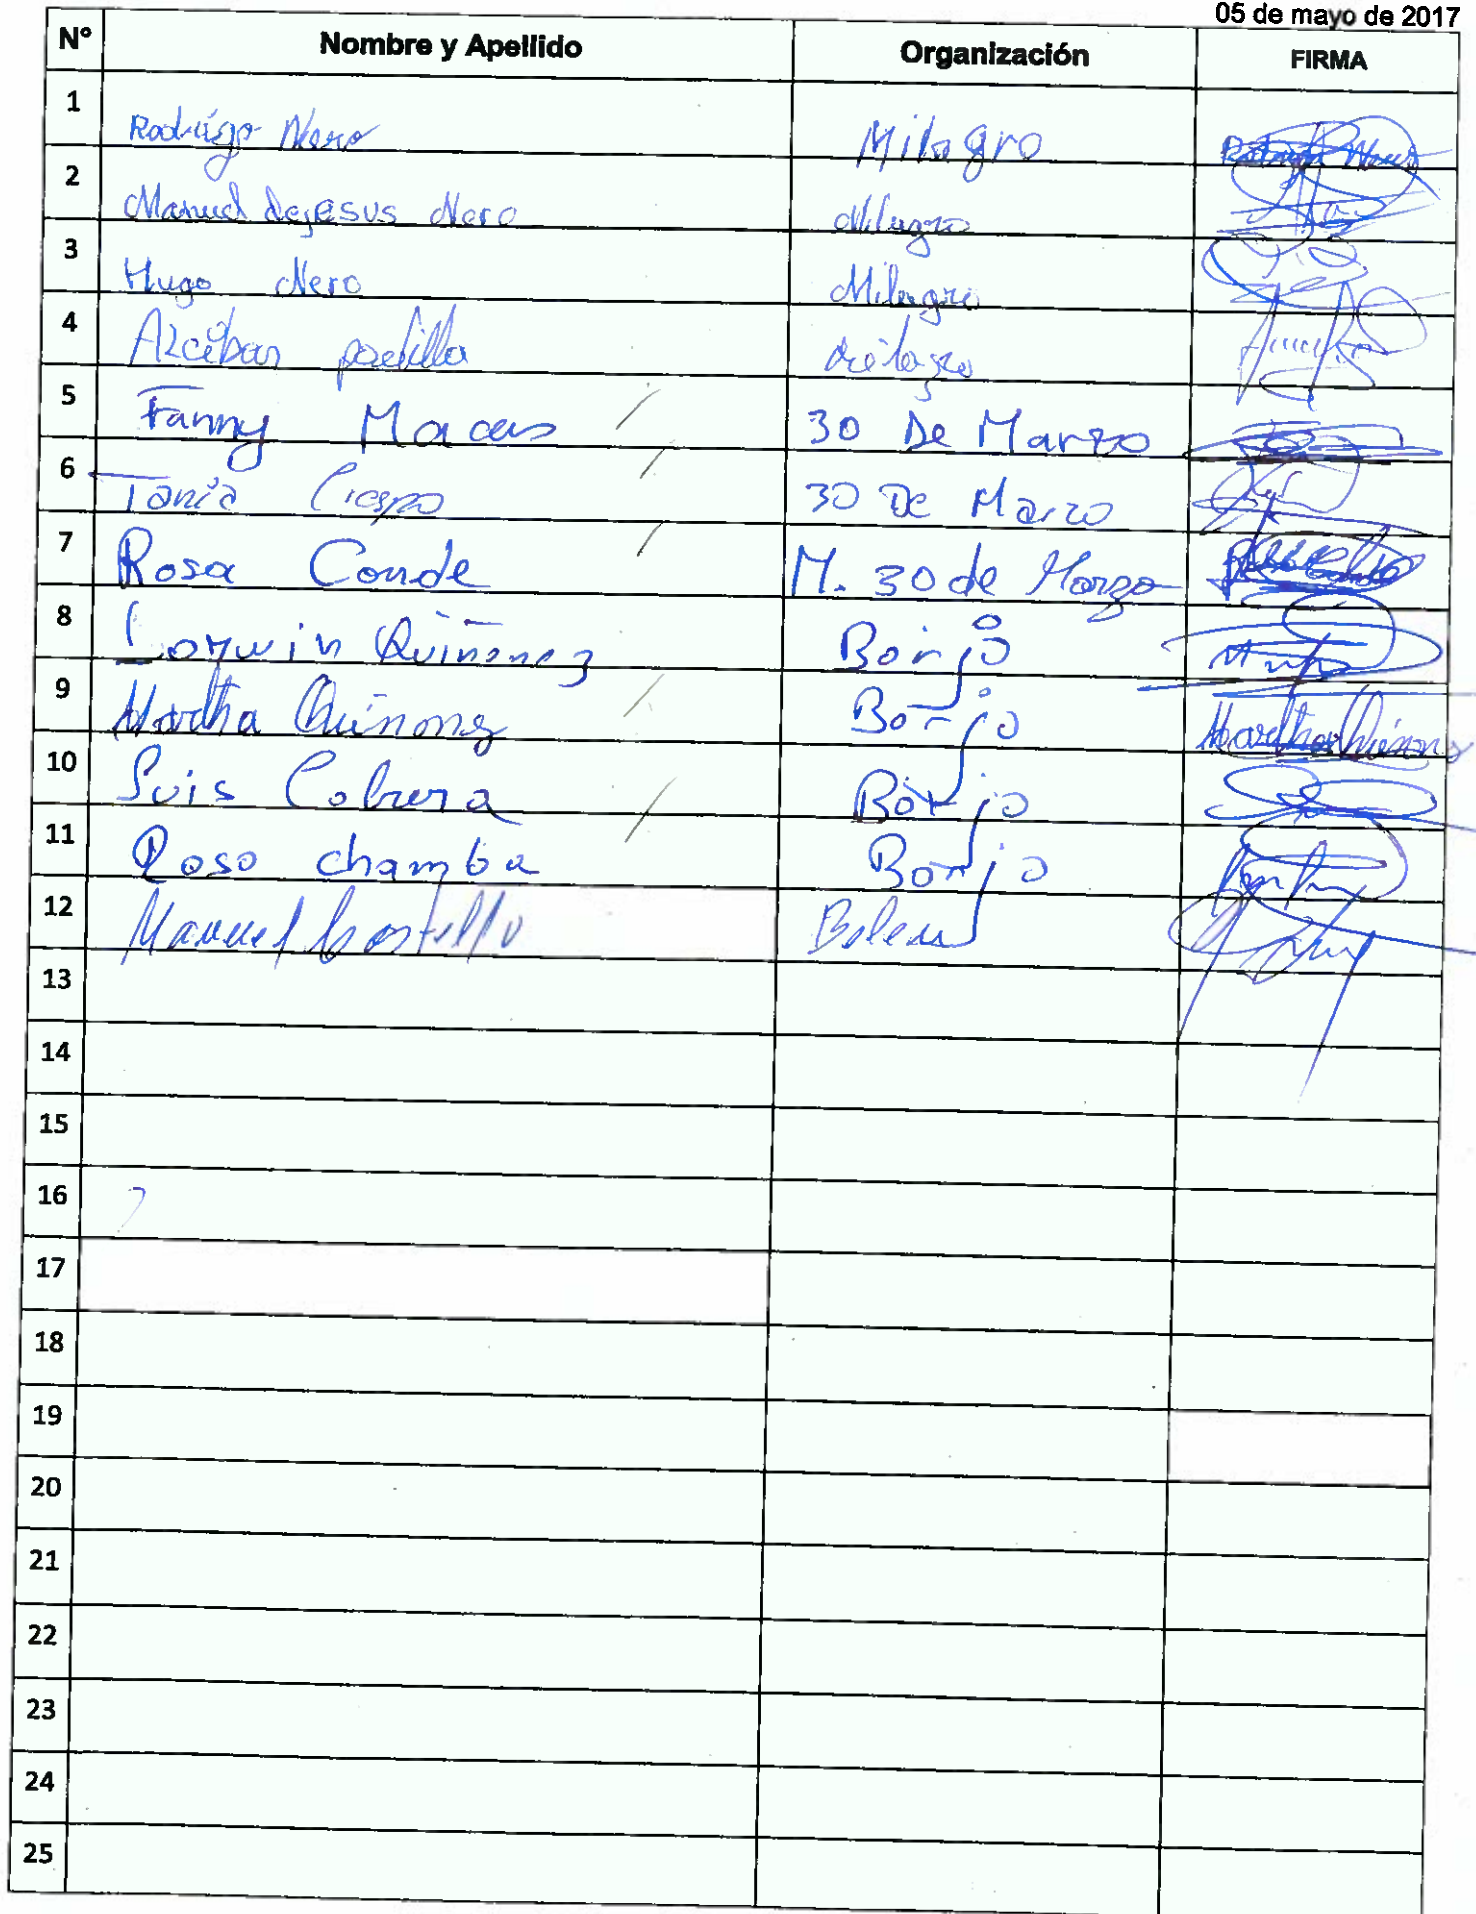 05 de mayo de 2017
N° Nombre y Apellido Organización FIRMA
1 Rodrigo Nero Milagro
2 Manuel dejesus Nero Milagro
3 Hugo Nero Milagro
4 padilla
5 Fanny Macas 30 De Marzo
6 Tania Crespo 30 De Marzo
7 Rosa Conde M. 30 de Marzo
8 Quiñonez Borja
9 Martha Quiñonez Borja Martha Quiñonz
10 Luis Cabrera Borja
11 Rosa chamba Borja
12 Manuel Castillo Belen
13
14
15
16
17
18
19
20
21
22
23
24
25